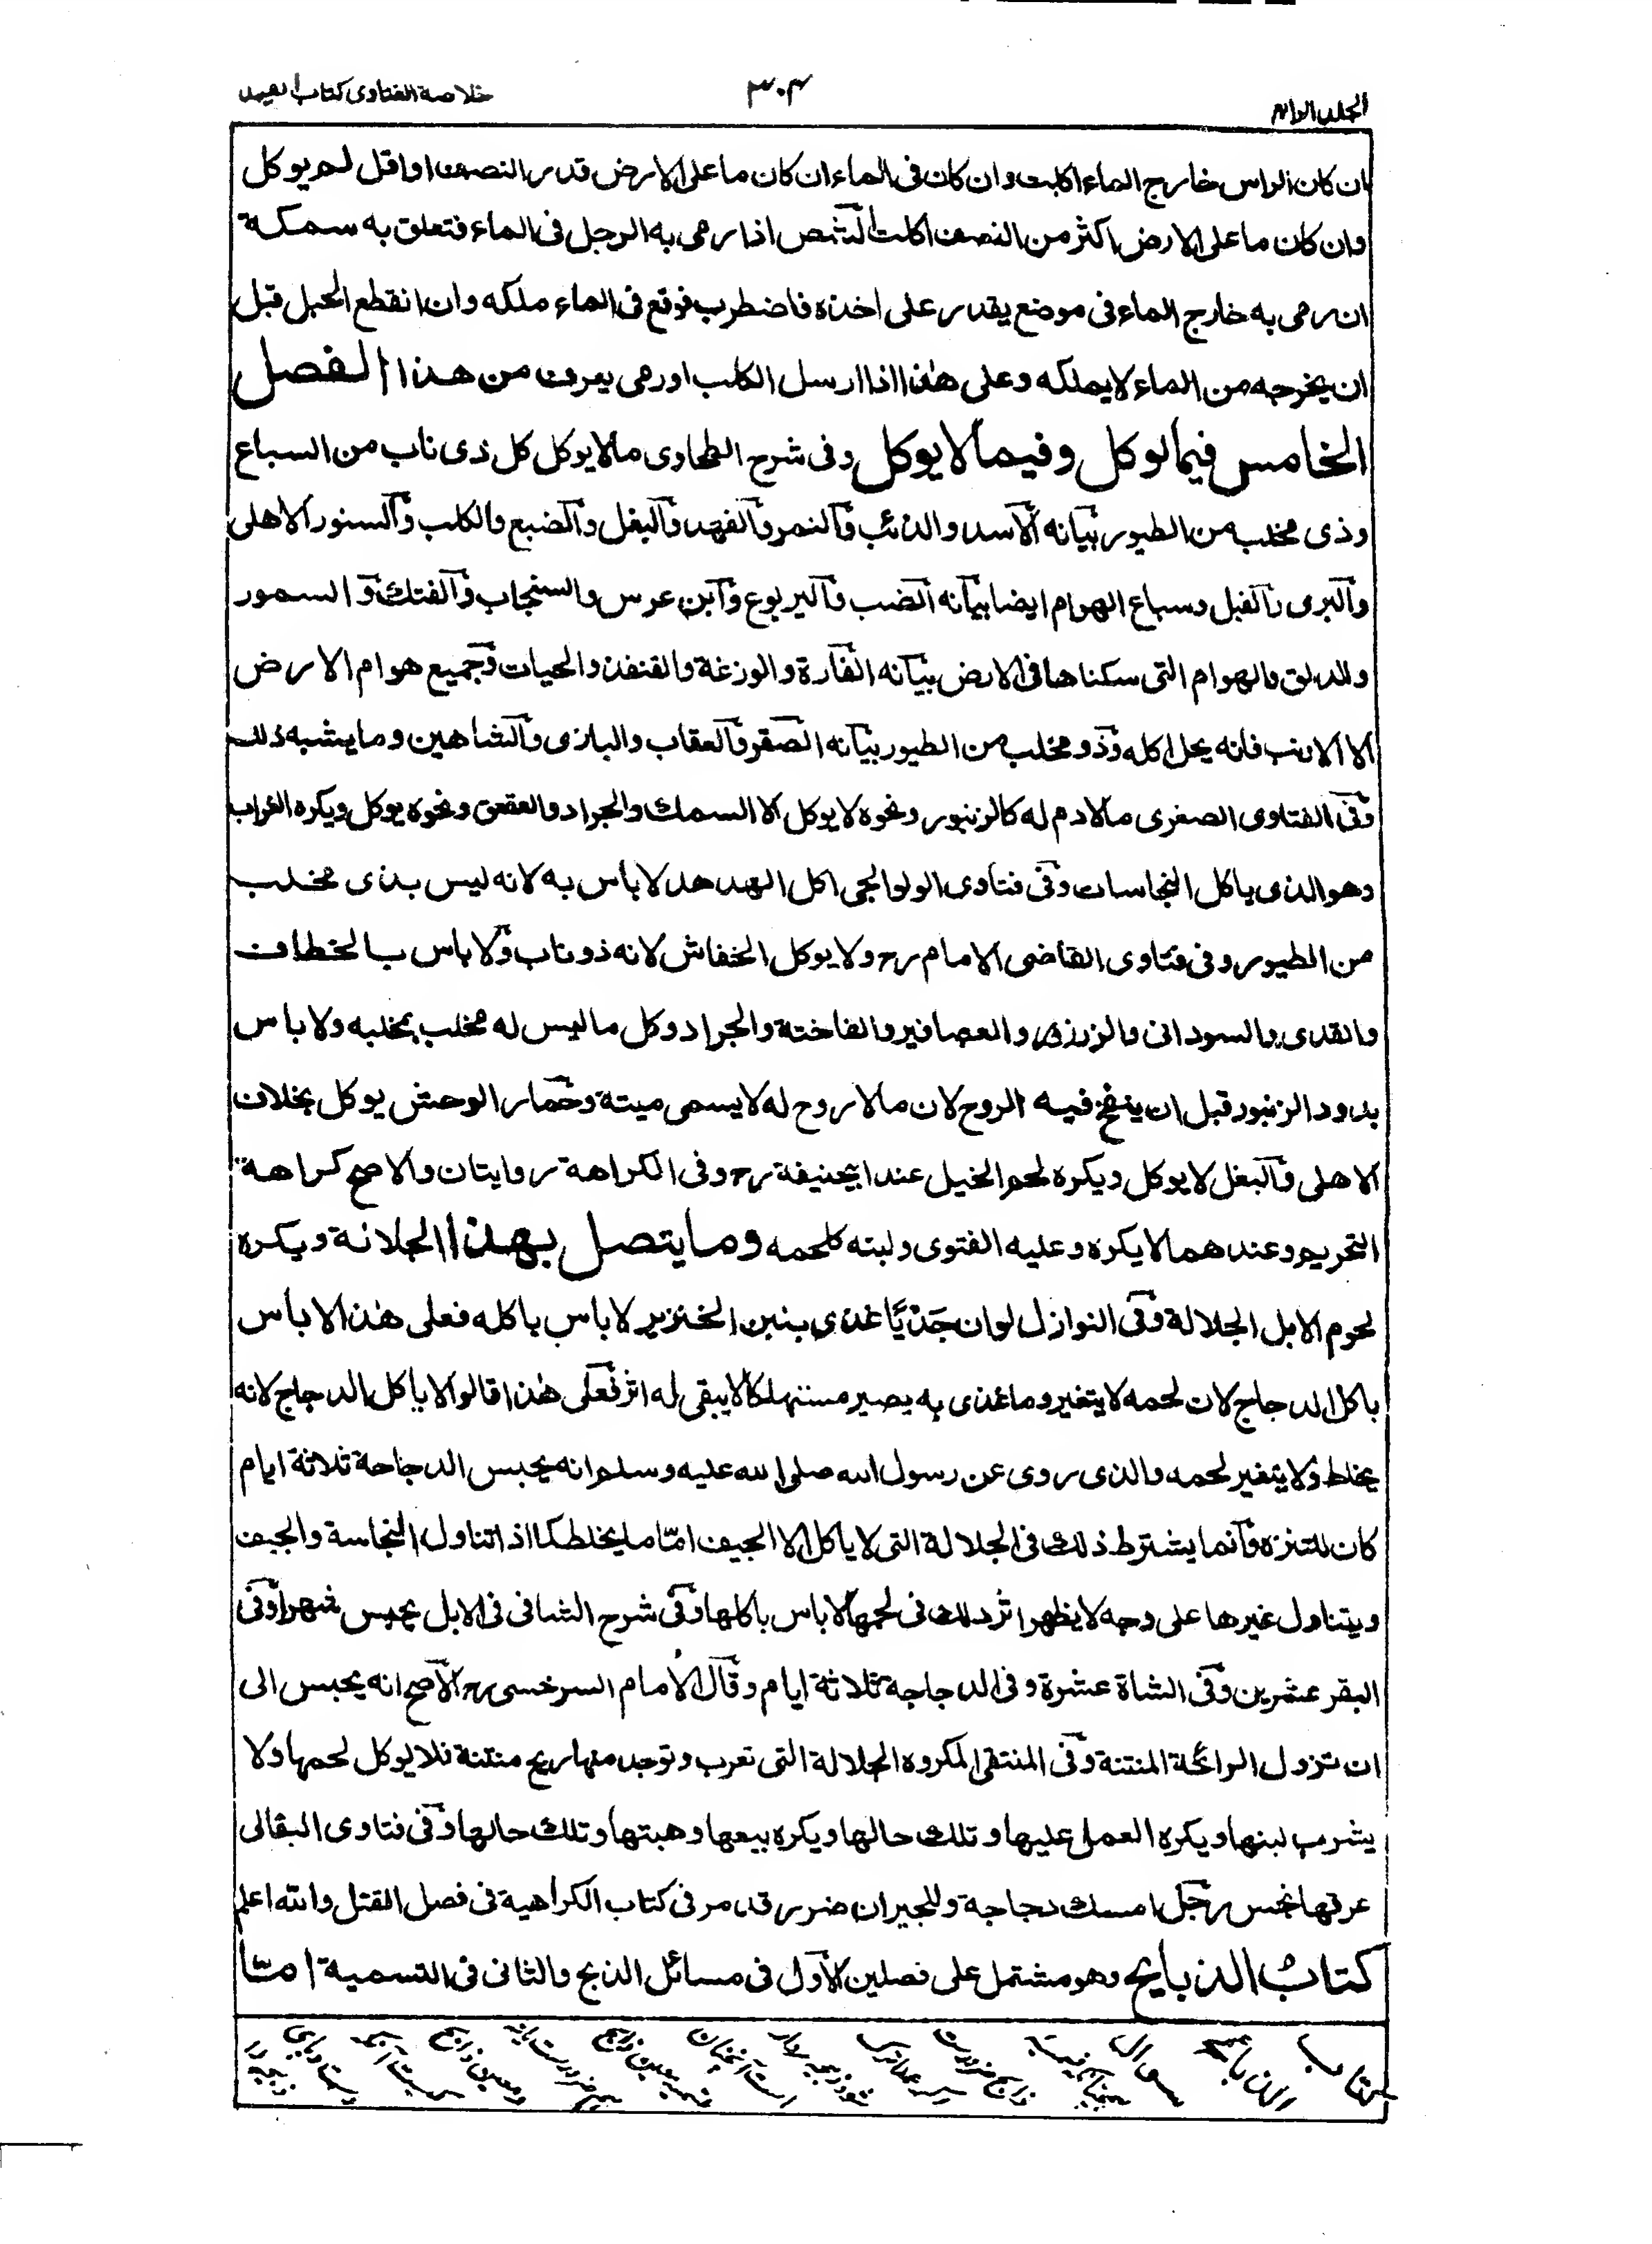 الجلد الرابع
٣٠٤
خلاصة الفتاوى كتاب الصيد
ان كان الراس خارج الماء اكلت وان كان فى الماء ان كان ما على الارض قدر النصف او اقل لم يوكل
وان كان ما على الارض اكثر من النصف اكلت الشص اذا رمى به الرجل فى الماء فتعلق به سمكة
ان رمى به خارج الماء فى موضع يقدر على اخذه فاضطرب فوقع فى الماء ملكه وان انقطع الحبل قبل
ان يخرجه من الماء لا يملكه وعلى هذا اذا ارسل الكلب اورمى يعرف من هذا الفصل
الخامس فيما يوكل وفيما لا يوكل وفى شرح الطحاوى ما لا يوكل كل ذى ناب من السباع
وذى مخلب من الطيور بيانه الاسد والذئب والنمر والفهد والبغل والضبع والكلب والسنور الاهلى
والبرى والفيل وسباع الهوام ايضا بيانه الضب واليربوع وابن عرس والسنجاب والفنك والسمور
والدلق والهوام التى سكناها فى الارض بيانه الفارة والوزغة والقنفذ والحيات وجميع هوام الارض
الا الارنب فانه يحل اكله وذو مخلب من الطيور بيانه الصقر والعقاب والبازى والشاهين وما يشبه ذلك
وفى الفتاوى الصغرى ما لا دم له كالزنبور ونحوه لا يوكل الا السمك والجراد والعقعق ونحوه يوكل ويكره الغراب
وهو الذى ياكل النجاسات وفى فتاوى الولوالجى اكل الهدهد لا باس به لانه ليس بذى مخلب
من الطيور وفى فتاوى القاضى الامام رح ولا يوكل الخفاش لانه ذو ناب ولا باس بالخطاف
والقمرى والسودانى والزرزور والعصافير والفاختة والجراد وكل ما ليس له مخلب بمخلبه ولا باس
بدود الزنبور قبل ان ينفخ فيه الروح لان ما لا روح له لا يسمى ميتة وحمار الوحش يوكل بخلاف
الاهلى والبغل لا يوكل ويكره لحم الخيل عند ابيحنيفة رح وفى الكراهة روايتان والاصح كراهة
التحريم وعندهما لا يكره وعليه الفتوى ولبنه كلحمه وما يتصل بهذا الجلالة ويكره
لحوم الابل الجلالة وفى النوازل لو ان جَدْيًا غذى بلبن الخنزير لا باس باكله فعلى هذا لا باس
باكل الدجاج لان لحمه لا يتغير وما غذى به يصير مستهلكا لا يبقى له اثر فعلى هذا قالوا لا باكل الدجاج لانه
يخلط ولا يتغير لحمه والذى روى عن رسول الله صلى الله عليه وسلم انه يحبس الدجاجة ثلاثة ايام
كان للتنزه وانما يشترط ذلك فى الجلالة التى لا ياكل الا الجيف امّا ما يخلط كما اذا تناول النجاسة والجيف
ويتناول غيرها على وجه لا يظهر اثر ذلك فى لحمها لا باس باكلها وفى شرح الشافى فى الابل يحبس شهرا وفى
البقر عشرين وفى الشاة عشرة وفى الدجاجة ثلاثة ايام وقال الامام السرخسى رح الاصح انه يحبس الى
ان تزول الرائحة المنتنة وفى المنتقى المكروه الجلالة التى تقرب وتوجد منها ريح منتنة فلا يوكل لحمها ولا
يشرب لبنها ويكره العمل عليها وتلك حالها ويكره بيعها وهبتها وتلك حالها وفى فتاوى البقالى
عرقها نجس رجل امسك دجاجة وللجيران ضرر قد مر فى كتاب الكراهية فى فصل القتل والله اعلم
كتاب الذبايح وهو مشتمل على فصلين الاول فى مسائل الذبح والثانى فى التسمية امّا